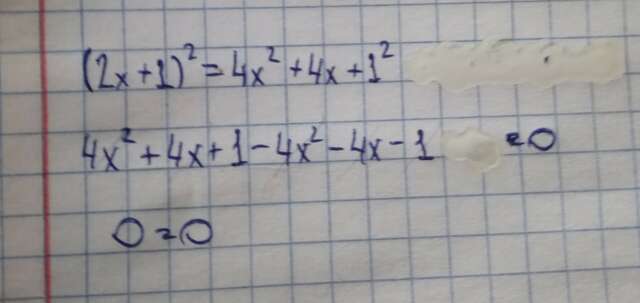 (2x+1)² = 4x² + 4x + 1²
4x² + 4x + 1 - 4x² - 4x - 1 = 0
0 = 0